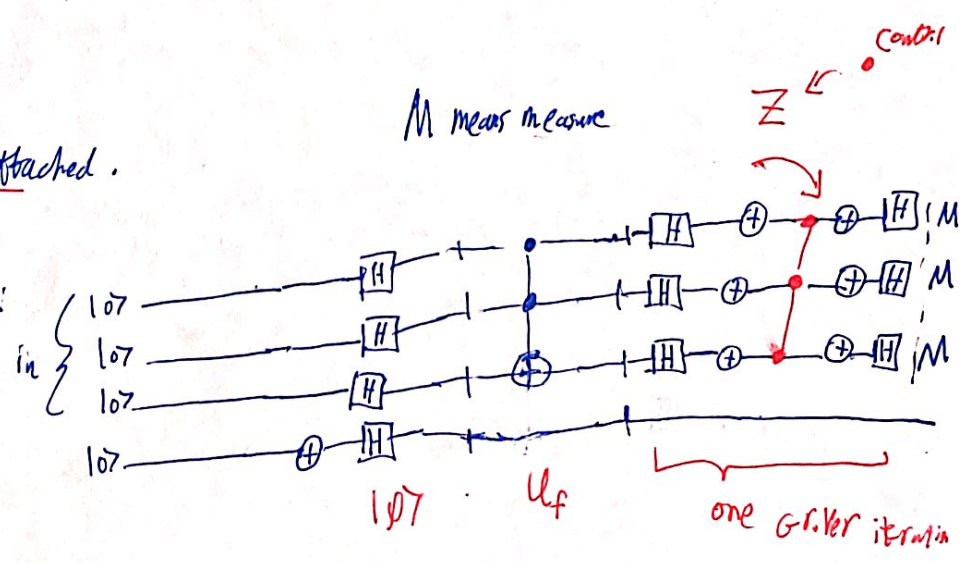 control
Z
M means measure
attached.
H M
H H M
in |0> H H H M
|0> H
|0>
|0> H
|φ> . Uf one Grover iteration